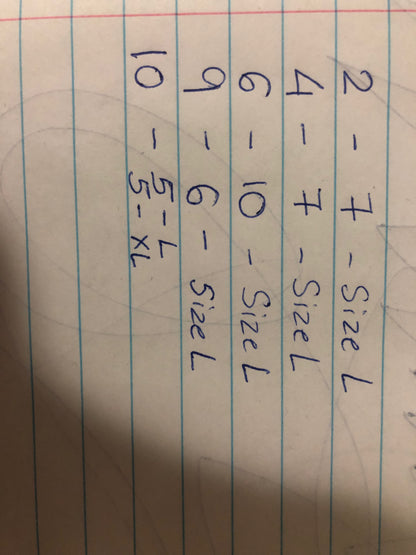 2 - 7 - Size L
4 - 7 - Size L
6 - 10 - Size L
9 - 6 - Size L
10 - 5 - L
5 - XL